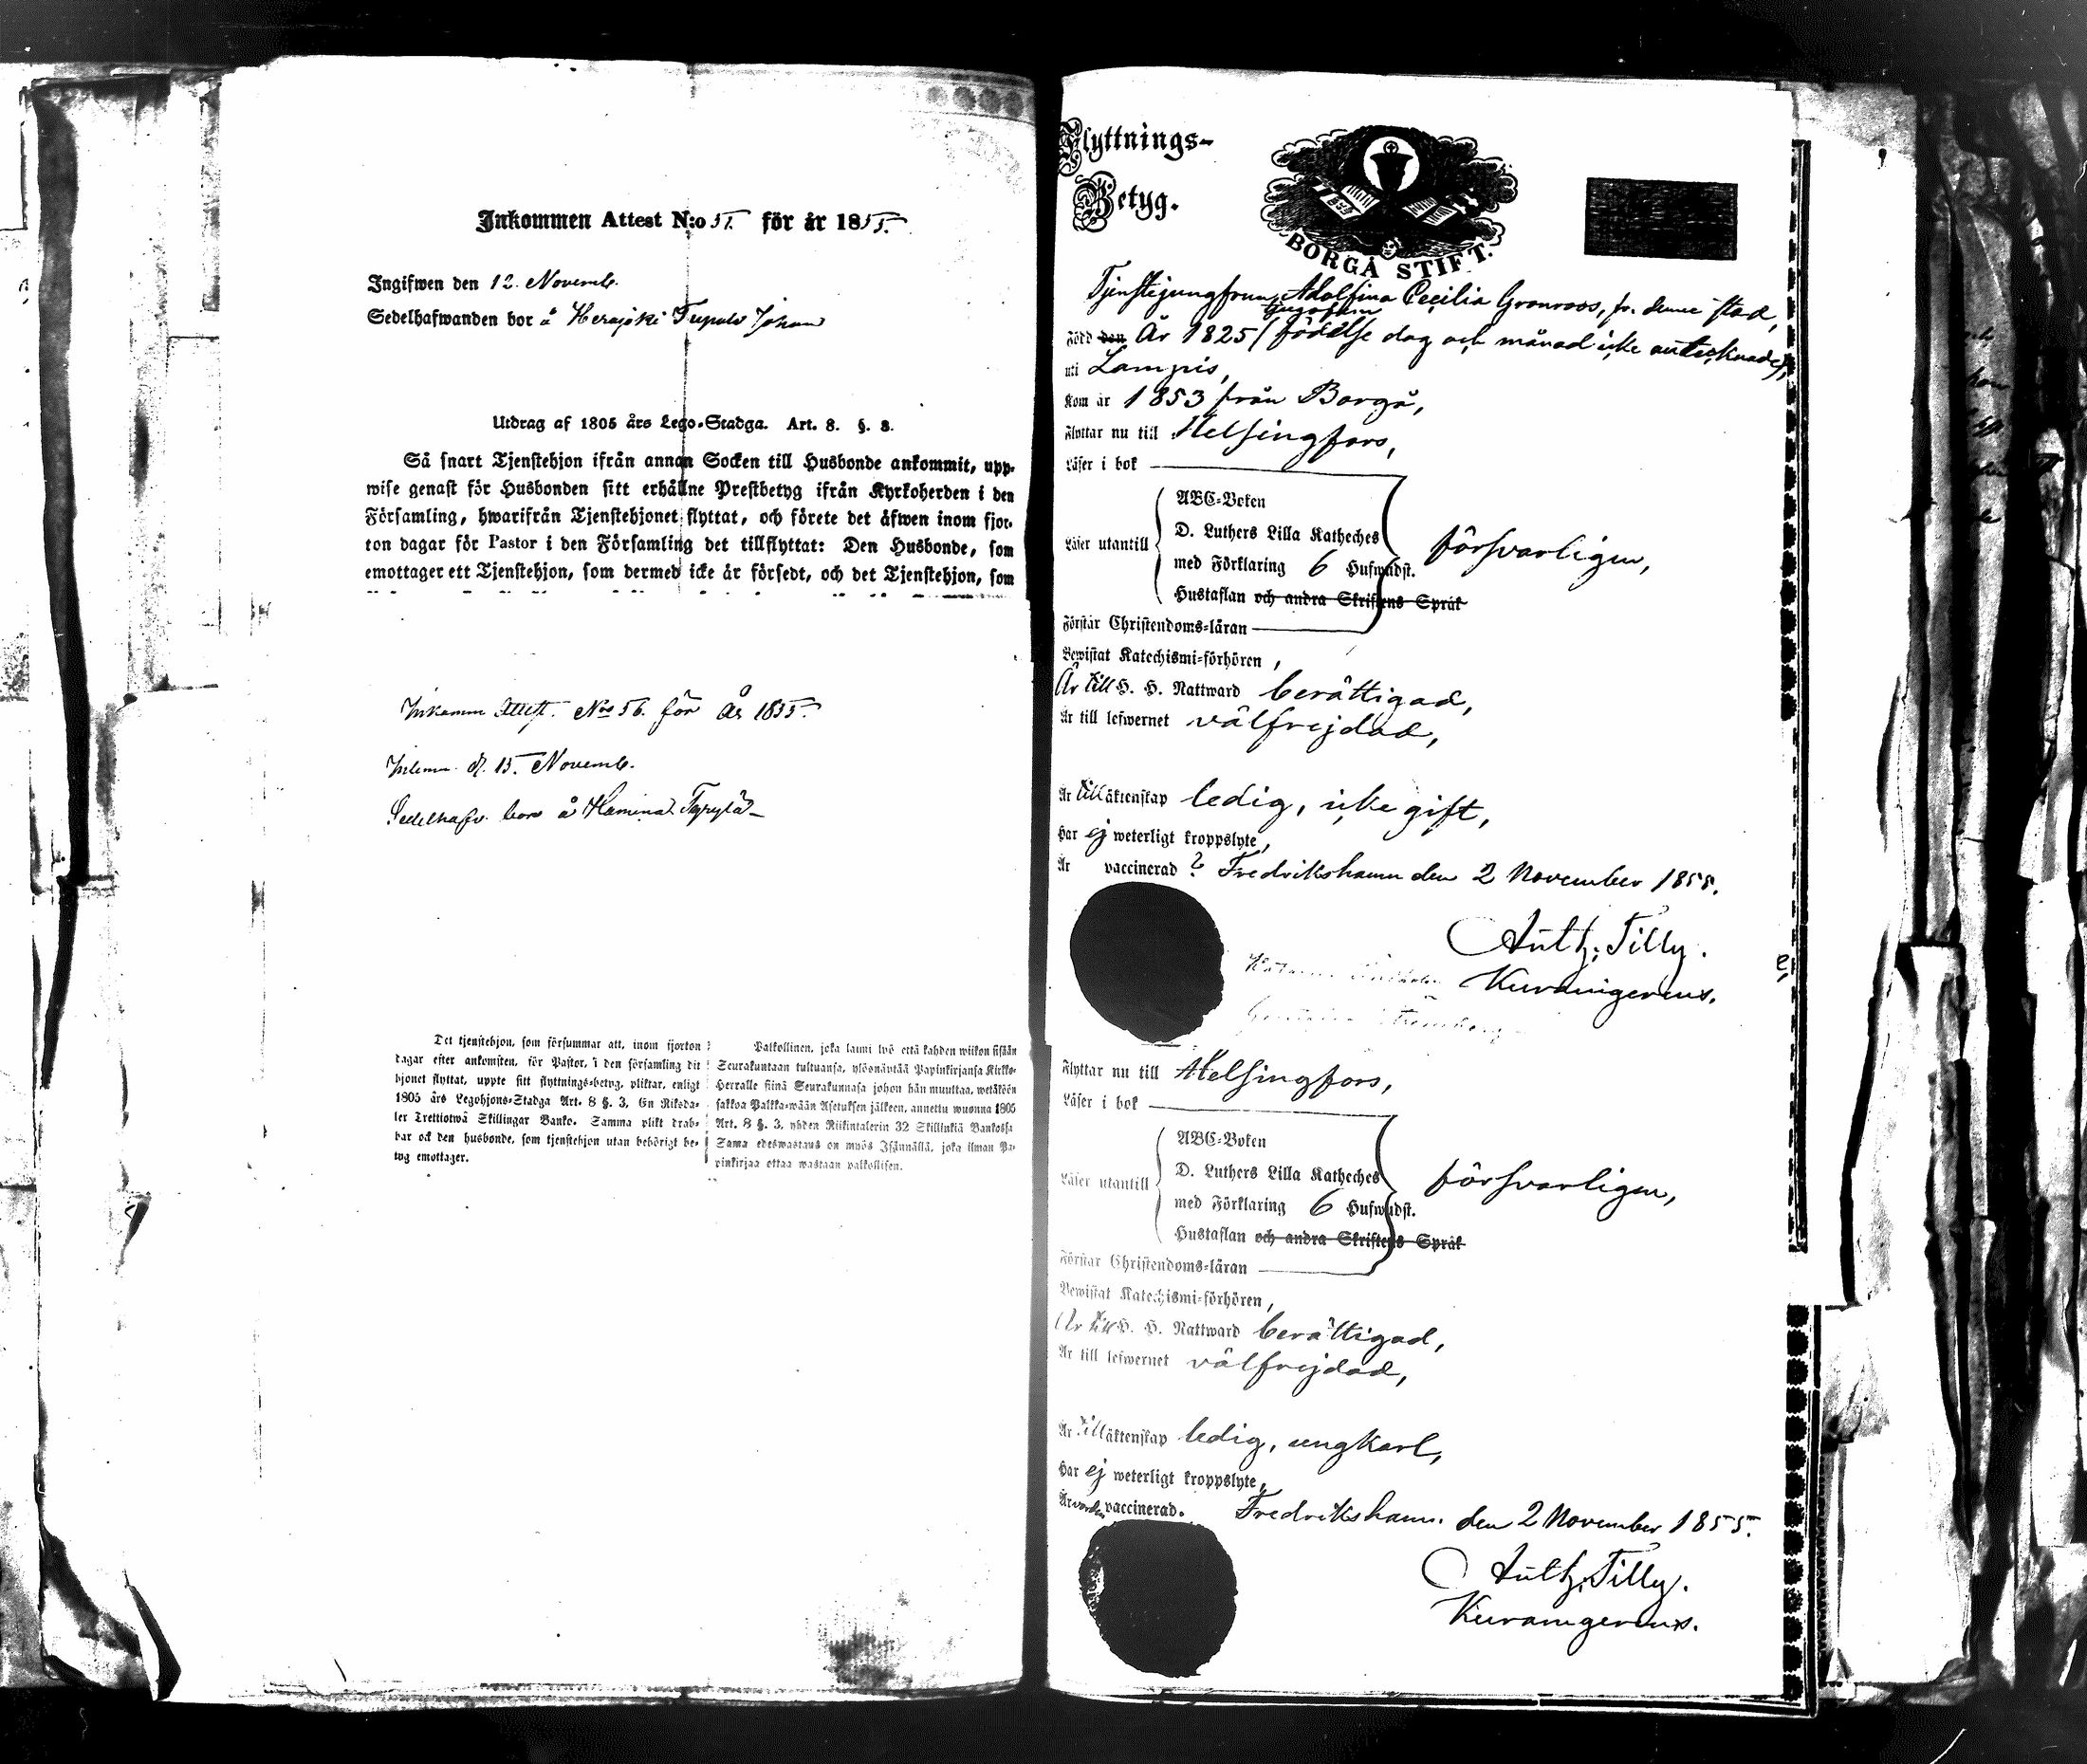 Inkommen Attest N:o 51. för år 1855.
Ingifwen den 12. Novemb.
Sedelhafwanden bor å Herajoki Johan
Utdrag af 1805 års Lego-Stadga. Art. 8. §. 3.
Så snart Tjenstehjon ifrån annan Socken till Husbonde ankommit, upp-
wise genast för Husbonden sitt erhållne Prestbetyg ifrån Kyrkoherden i den
Församling, hwarifrån Tjenstehjonet flyttat, och förete det äfwen inom fjor-
ton dagar för Pastor i den Församling det tillflyttat: Den Husbonde, som
emottager ett Tjenstehjon, som dermed icke är försedt, och det Tjenstehjon, som
Inkomm Attest. No 56. för År 1855.
d. 15. Novemb.
Sedelhafv. bor å
Det tjenstehjon, som försummar att, inom fjorton
dagar efter ankomsten, för Pastor, i den församling dit
hjonet flyttat, uppte sitt flyttnings-betyg, pliktar, enligt
1805 års Legohjons-Stadga Art. 8 §. 3, En Riksda-
ler Trettiotwå Skillingar Banko. Samma plikt drab-
bar ock den husbonde, som tjenstehjon utan behörigt be-
tyg emottager.
Palkollinen, joka laimi lyö että kahden wiikon sisään
Seurakuntaan tultuansa, ylösnäyttää Papinkirjansa Kirkko-
Herralle siinä Seurakunnasa johon hän muuttaa, wetäköön
sakkoa Palkka-wään Asetuksen jälkeen, annettu wuonna 1805
Art. 8 §. 3, yhden Riikintalerin 32 Skillinkiä Bankossa
Sama edeswastaus on myös Isännällä, joka ilman Pa-
pinkirjaa ottaa wastaan palkollisen.
Flyttnings-
Betyg.
BORGÅ STIFT.
Tjenstejungfrun Adolfina Cecilia Gronroos, fr. denne stad,
tjugofem
Född den År 1825 / födelse dag och månad icke antecknade/,
uti Lampis,
Kom år 1853 från Borgå,
Flyttar nu till Helsingfors,
Läser i bok
ABC-Boken
D. Luthers Lilla Katheches
Läser utantill med Förklaring 6 Hufwudst. försvarligen,
Hustaflan och andra Skriftens Språk
Förstår Christendoms-läran
Bewistat Katechismi-förhören,
Är till H. H. Nattward berättigad,
Är till lefwernet välfrejdad,
Är till äktenskap ledig, icke gift,
Har ej weterligt kroppslyte,
Är vaccinerad ? Fredrikshamn den 2 November 1855.
Anth. Tilly.
Kuramgerens.
Flyttar nu till Helsingfors,
Läser i bok
ABC-Boken
D. Luthers Lilla Katheches
Läser utantill med Förklaring 6 Hufwudst. försvarligen,
Hustaflan och andra Skriftens Språk
Förstår Christendoms-läran
Bewistat Katechismi-förhören,
Är till H. H. Nattward berättigad,
Är till lefwernet välfrejdad,
Är till äktenskap ledig, ungkarl,
Har ej weterligt kroppslyte,
Är vorden vaccinerad. Fredrikshamn. den 2 November 1855.
Anth. Tilly.
Kuramgerens.